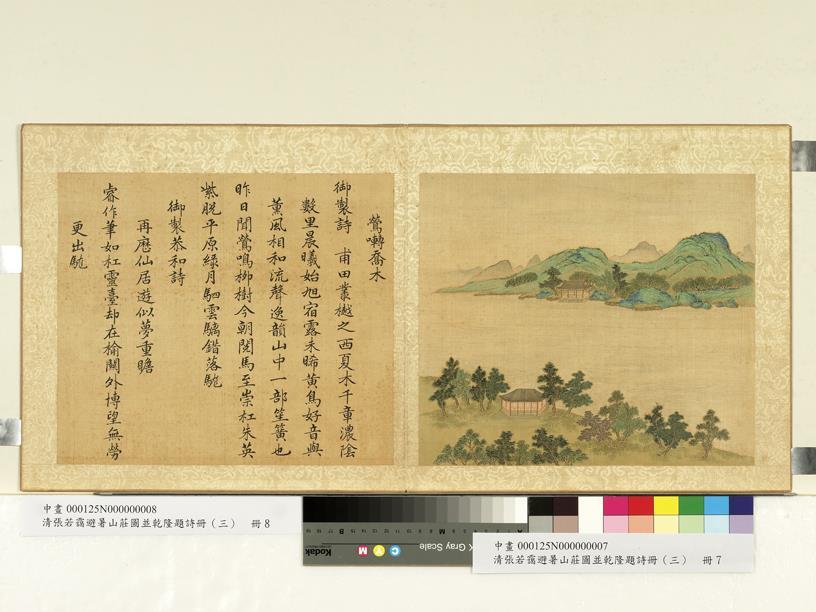 鶯囀喬木
御製詩 甫田叢樾之西夏木千章濃陰
數里晨曦始旭宿露未晞黃鳥好音與
薰風相和流聲逸韻山中一部笙簧也
昨日聞鶯鳴柳樹今朝閱馬至崇杠朱英
紫脫平原綠月駟雲驈錯落駹
御製恭和詩
再歷仙居遊似夢重瞻
睿作筆如杠靈臺却在榆關外博望無勞
更出駹
中畫 000125N000000008
清張若靄避暑山莊圖並乾隆題詩冊(三) 冊8
Kodak
C Y M
Gray Scale
中畫 000125N000000007
清張若靄避暑山莊圖並乾隆題詩冊(三) 冊7